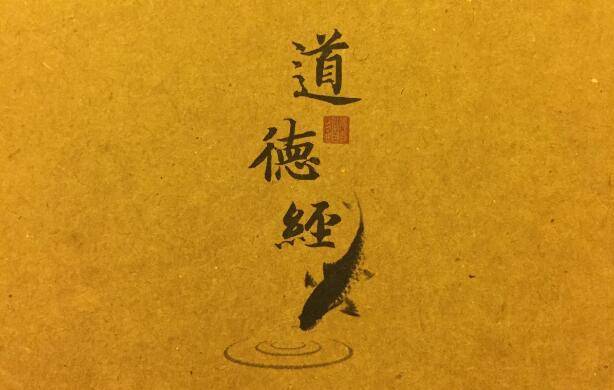 道
德
經